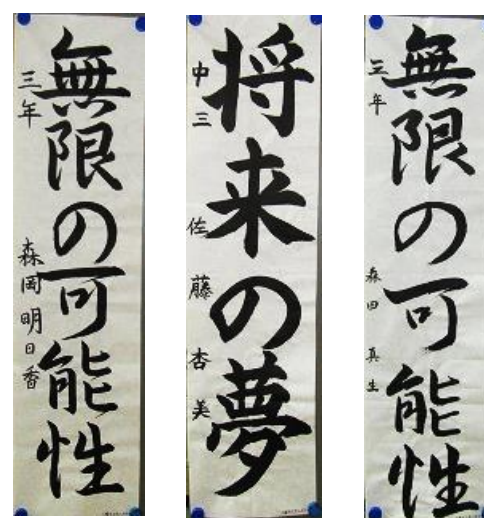 無限の可能性
三年 森岡明日香
将来の夢
中三 佐藤杏美
無限の可能性
三年 森田真生